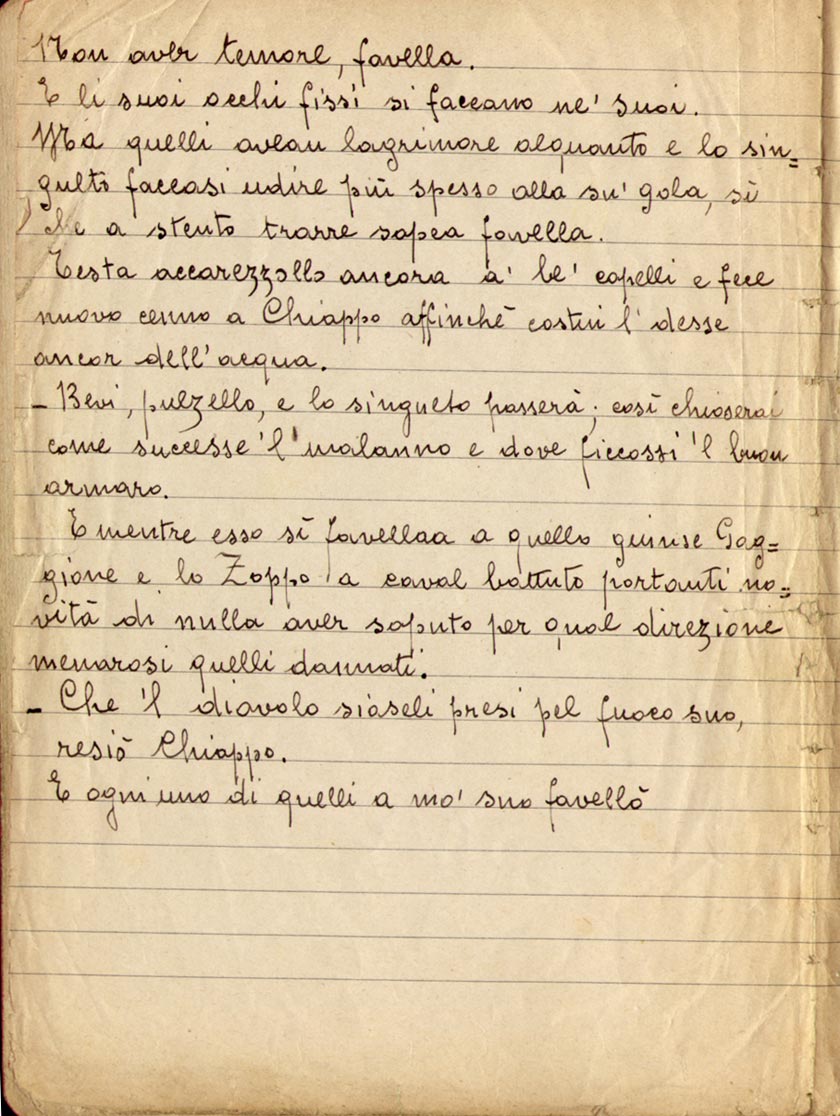 Non aver temore, favella.
E li suoi occhi fissi si faceano ne' suoi.
Ma quelli avean lagrimore alquanto e lo sin=
gulto faceasi udire più spesso alla su' gola, sì
che a stento trarre sapea favella.
Testa accarezzollo ancora a' be' capelli e fece
nuovo cenno a Chiappo affinchè costui l' desse
ancor dell'acqua.
- Bevi, pulzello, e lo singulto passerà; così chioserai
come successe 'l malanno e dove ficcossi 'l buon
armaro.
E mentre esso sì favellaa a quello giunse Gag=
gione e lo Zoppo a caval battuto portanti no=
vità di nulla aver saputo per qual direzione
menarosi quelli dannati.
- Che 'l diavolo siaseli presi pel fuoco suo,
resiò Chiappo.
E ogni uno di quelli a mo' suo favellò